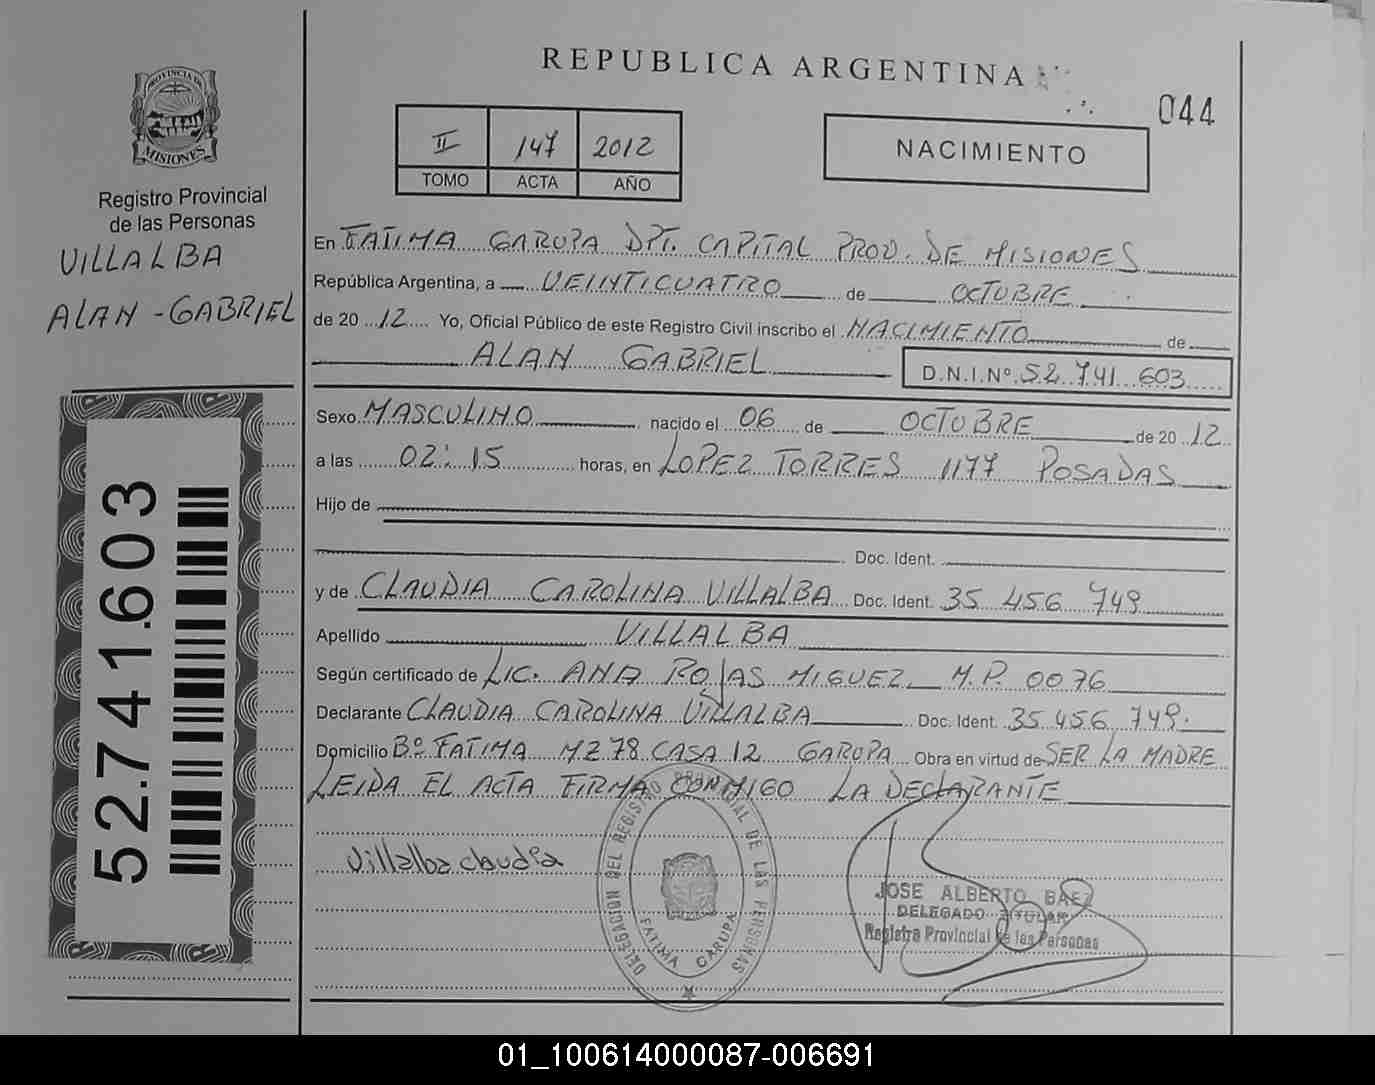 REPUBLICA ARGENTINA
044
PROVINCIA DE
MISIONES
Registro Provincial
de las Personas
VILLALBA
ALAN - GABRIEL
52.741.603
II 147 2012
TOMO ACTA AÑO
NACIMIENTO
En FATIMA GARUPA DPT. CAPITAL PROV. DE MISIONES
República Argentina, a VEINTICUATRO de OCTUBRE
de 20 12 Yo, Oficial Público de este Registro Civil inscribo el NACIMIENTO de
ALAN GABRIEL D.N.I.Nº 52 741 603
Sexo MASCULINO nacido el 06 de OCTUBRE de 20 12
a las 02:15 horas, en LOPEZ TORRES 1177 POSADAS
Hijo de
Doc. Ident.
y de CLAUDIA CAROLINA VILLALBA Doc. Ident. 35 456 749
Apellido VILLALBA
Según certificado de LIC. ANA ROJAS MIGUEZ M.P. 0076
Declarante CLAUDIA CAROLINA VILLALBA Doc. Ident. 35 456 749.
Domicilio Bº FATIMA MZ 78 CASA 12 GARUPA Obra en virtud de SER LA MADRE
LEIDA EL ACTA FIRMA CONMIGO LA DECLARANTE
Villalba claudia
DELEGACION DEL REGISTRO PROVINCIAL DE LAS PERSONAS
FATIMA GARUPA
JOSE ALBERTO BAEZ
DELEGADO TITULAR
Registro Provincial de las Personas
01_100614000087-006691